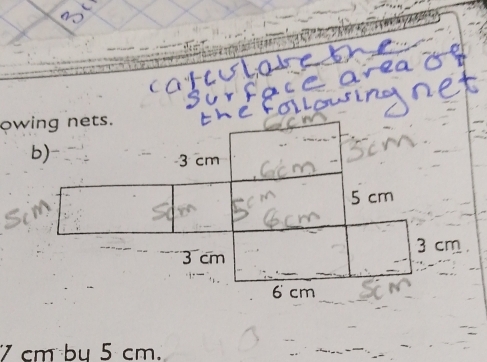 3
calculate the
surface area of
the following net
owing nets.
6cm
b)
3 cm
3cm
6cm
5cm
5cm
5cm
5 cm
6cm
3 cm
3 cm
6 cm
5cm
7 cm by 5 cm.